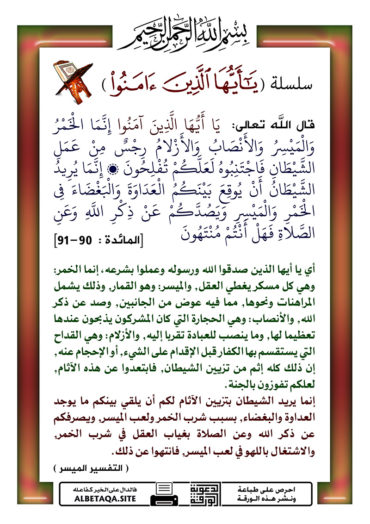 بسم الله الرحمن الرحيم
سلسلة ( يَٰٓأَيُّهَا ٱلَّذِينَ ءَامَنُوا۟ )
قال الله تعالى: يَا أَيُّهَا الَّذِينَ آمَنُوا إِنَّمَا الْخَمْرُ
وَالْمَيْسِرُ وَالأَنْصَابُ وَالأَزْلامُ رِجْسٌ مِنْ عَمَلِ
الشَّيْطَانِ فَاجْتَنِبُوهُ لَعَلَّكُمْ تُفْلِحُونَ ۞ إِنَّمَا يُرِيدُ
الشَّيْطَانُ أَنْ يُوقِعَ بَيْنَكُمُ الْعَدَاوَةَ وَالْبَغْضَاءَ فِي
الْخَمْرِ وَالْمَيْسِرِ وَيَصُدَّكُمْ عَنْ ذِكْرِ اللَّهِ وَعَنِ
الصَّلاةِ فَهَلْ أَنْتُمْ مُنْتَهُونَ [المائدة : 90-91]
أي يا أيها الذين صدقوا الله ورسوله وعملوا بشرعه، إنما الخمر:
وهي كل مسكر يغطي العقل، والميسر: وهو القمار، وذلك يشمل
المراهنات ونحوها، مما فيه عوض من الجانبين، وصد عن ذكر
الله، والأنصاب: وهي الحجارة التي كان المشركون يذبحون عندها
تعظيما لها، وما ينصب للعبادة تقربا إليه، والأزلام: وهي القداح
التي يستقسم بها الكفار قبل الإقدام على الشيء، أو الإحجام عنه،
إن ذلك كله إثم من تزيين الشيطان، فابتعدوا عن هذه الآثام،
لعلكم تفوزون بالجنة.
إنما يريد الشيطان بتزيين الآثام لكم أن يلقي بينكم ما يوجد
العداوة والبغضاء، بسبب شرب الخمر ولعب الميسر، ويصرفكم
عن ذكر الله وعن الصلاة بغياب العقل في شرب الخمر،
والاشتغال باللهو في لعب الميسر، فانتهوا عن ذلك.
( التفسير الميسر )
احرص على طباعة
ونشر هذه الورقة
فالدال على الخير كفاعله
ALBETAQA.SITE